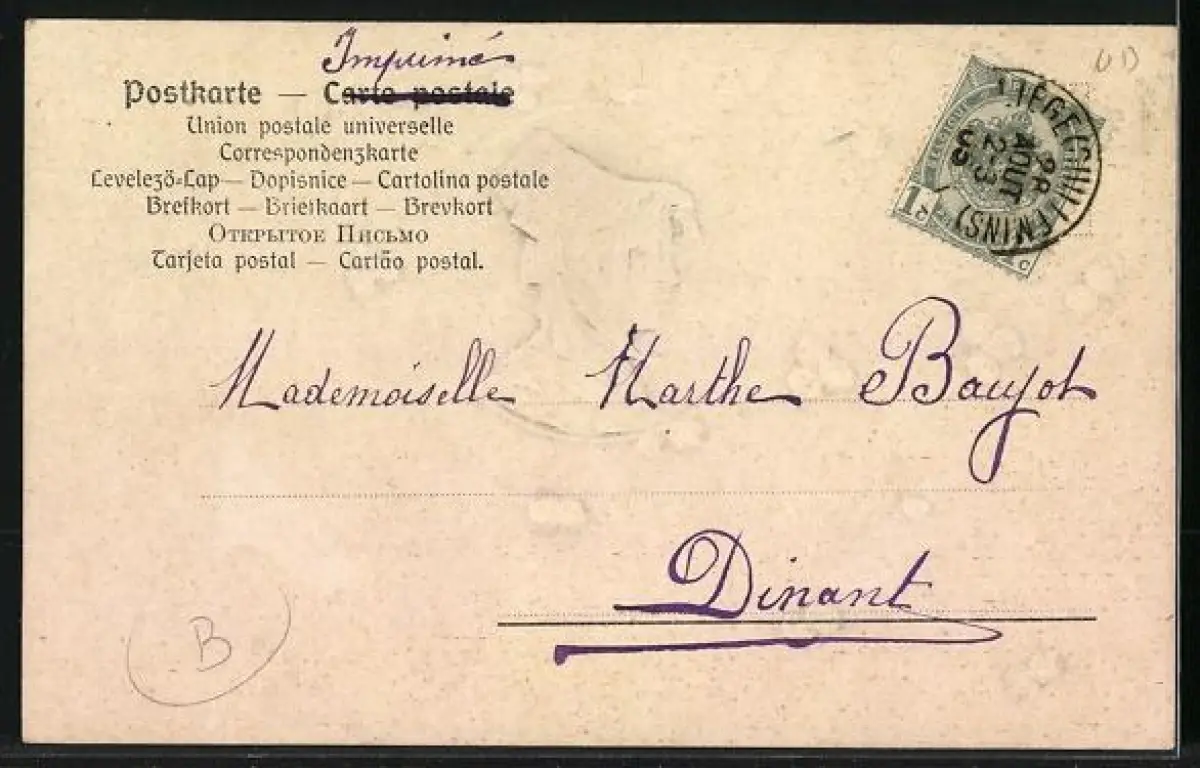 Imprimé
Postkarte — Carte postale
Union postale universelle
Correspondenzkarte
Levelező-Lap — Dopisnice — Cartolina postale
Brefkort — Briefkaart — Brevkort
Открытое Письмо
Tarjeta postal — Cartão postal.
LIÉGE (GUILLEMINS)
28
AOUT
2-3
1
Mademoiselle Marthe Baujot
Dinant
B